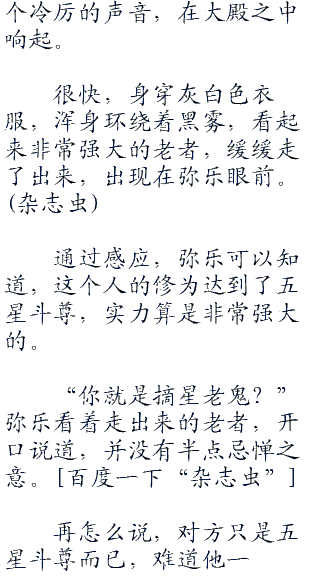 个冷厉的声音，在大殿之中
响起。
很快，身穿灰白色衣
服，浑身环绕着黑雾，看起
来非常强大的老者，缓缓走
了出来，出现在弥乐眼前。
(杂志虫)
通过感应，弥乐可以知
道，这个人的修为达到了五
星斗尊，实力算是非常强大
的。
“你就是摘星老鬼？”
弥乐看着走出来的老者，开
口说道，并没有半点忌惮之
意。[百度一下“杂志虫”]
再怎么说，对方只是五
星斗尊而已，难道他一